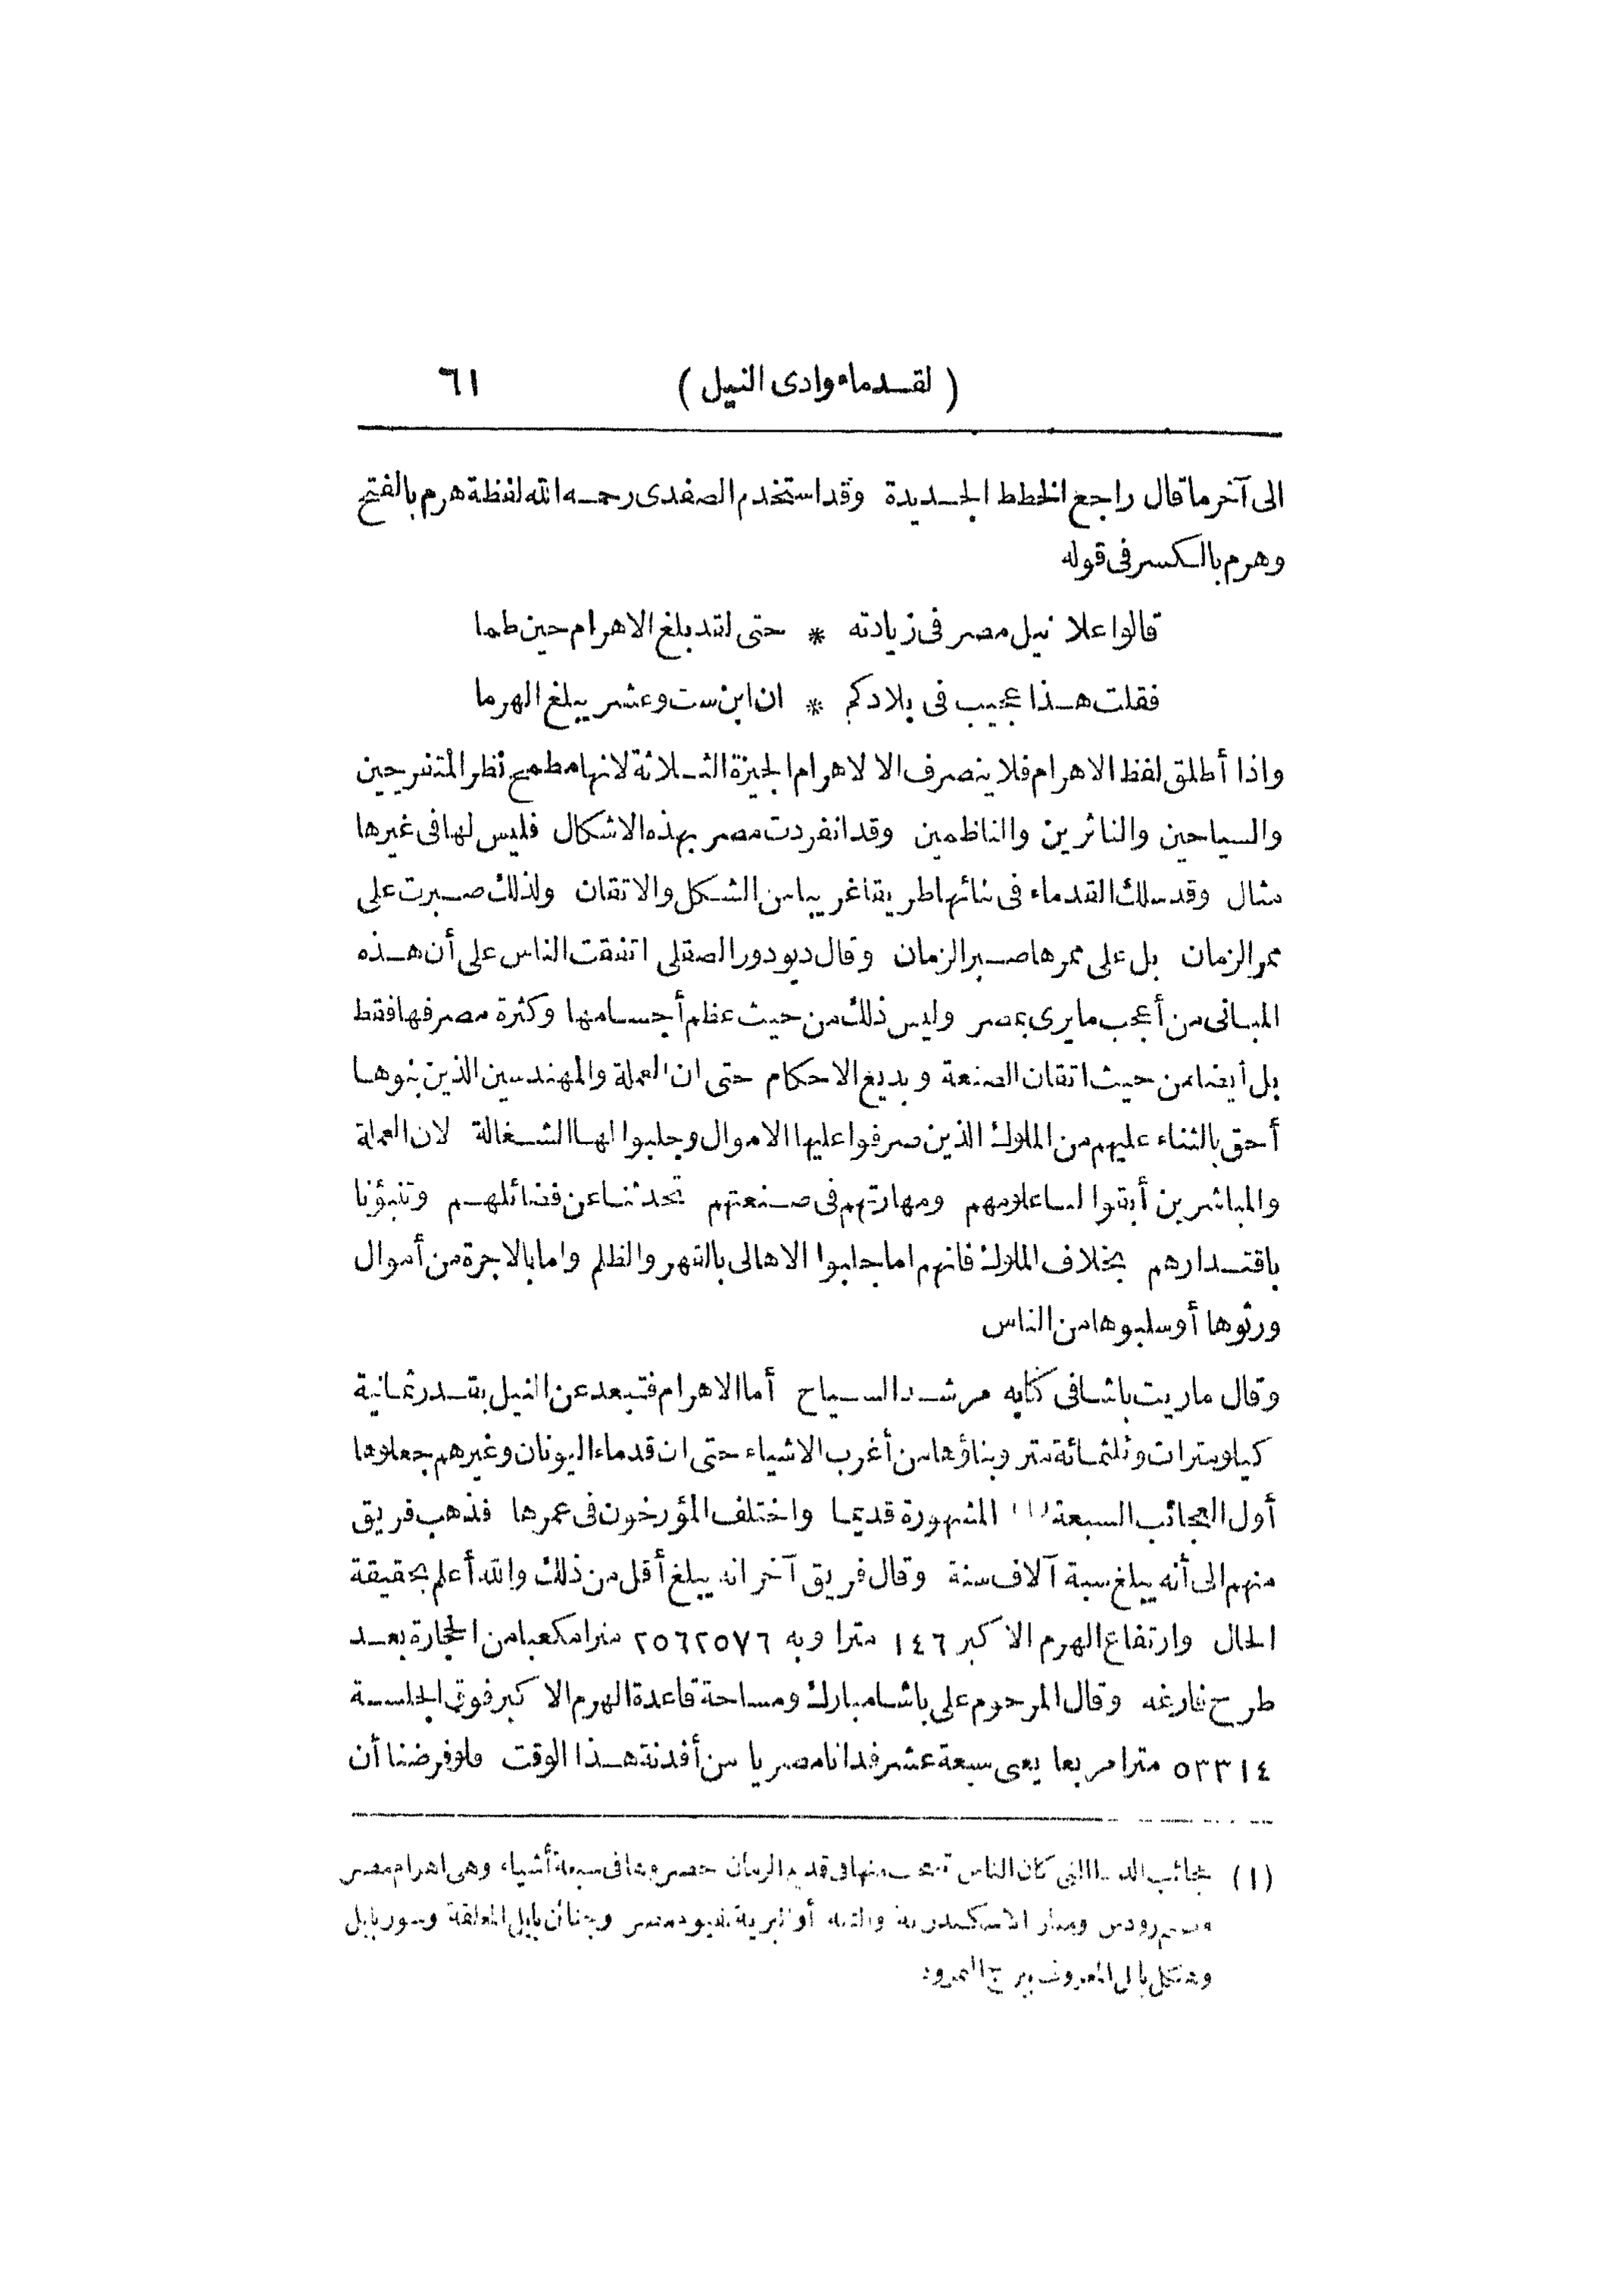 ( لقدماء وادى النيل ) ٦١
الى آخر ما قال راجع الخطط الجديدة وقد استخدم الصفدى رحمه الله لفظة هرم بالفتح
وهرم بالكسر فى قوله
قالوا علا نيل مصر فى زيادته * حتى لقد بلغ الاهرام حين طما
فقلت هذا عجيب فى بلادكم * ان ابن ست وعشر يبلغ الهرما
واذا أطلق لفظ الاهرام فلا ينصرف الا لاهرام الجيزة الثلاثة لانها مطمح نظر المتفرجين
والسياحين والناثرين والناظمين وقد انفردت مصر بهذه الاشكال فليس لها فى غيرها
مثال وقد سلك القدماء فى بنائها طريقا غريبا من الشكل والاتقان ولذلك صبرت على
ممر الزمان بل على ممرها صبر الزمان وقال ديودور الصقلى اتفقت الناس على أن هذه
المبانى من أعجب ما يرى بمصر وليس ذلك من حيث عظم أجسامها وكثرة مصرفها فقط
بل أيضا من حيث اتقان الصنعة وبديع الاحكام حتى ان العملة والمهندسين الذين بنوها
أحق بالثناء عليهم من الملوك الذين صرفوا عليها الاموال وجلبوا لها الشغالة لان العملة
والمباشرين أبقوا لنا علومهم ومهارتهم فى صنعتهم تحدثنا عن فضائلهم وتنبؤنا
باقتدارهم بخلاف الملوك فانهم اما جلبوا الاهالى بالقهر والظلم واما بالاجرة من أموال
ورثوها أو سلبوها من الناس
وقال ماريت باشا فى كتابه مرشد السياح أما الاهرام فتبعد عن النيل بقدر ثمانية
كيلومترات وثلثمائة متر وبناؤها من أغرب الاشياء حتى ان قدماء اليونان وغيرهم جعلوها
أول العجائب السبعة (١) المشهورة قديما واختلف المؤرخون فى عمرها فذهب فريق
منهم الى أنه يبلغ ستة آلاف سنة وقال فريق آخر انه يبلغ أقل من ذلك والله أعلم بحقيقة
الحال وارتفاع الهرم الاكبر ١٤٦ مترا وبه ٢٥٦٢٥٧٦ مترا مكعبا من الحجارة بعد
طرح فارغه وقال المرحوم على باشا مبارك ومساحة قاعدة الهرم الاكبر فوق الجلسة
٥٣٣١٤ مترا مربعا يعى سبعة عشر فدانا مصريا من أفدنة هذا الوقت فلو فرضنا أن
(١) عجائب الدنيا التى كان الناس تتعجب منها فى قديم الزمان حصروها فى سبعة أشياء وهى اهرام مصر
وصنم رودس ومنار الاسكندرية والتيه أو البرية بفيوم مصر وجنائن بابل المعلقة وسور بابل
وهيكل بابل المعروف ببرج النمرود